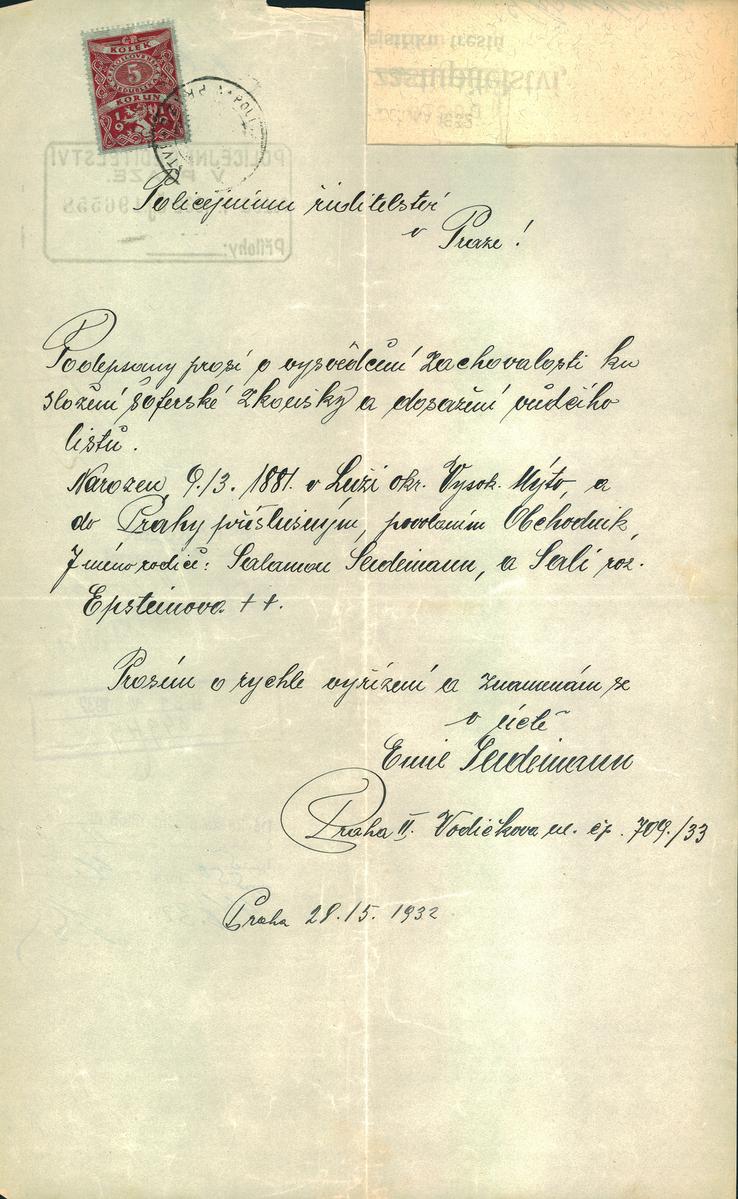 KOLEK
5
KORUN
1919
Policejnímu řiditelství
v Praze!
Podepsaný prosí o vysvědčení zachovalosti ku
složení šoferské zkoušky a dosažení vůdčího
listu.
Narozen 9./3. 1881. v Luži okr. Vysok. Mýto, a
do Prahy příslušným, povoláním Obchodník,
Jméno rodičů: Salamon Seidemann, a Sali roz.
Epsteinova ++.
Prosím o rychlé vyřízení a znamenám se
v úctě
Emil Seidemann
Praha II. Vodičkova ul. čp. 709./33
Praha 28./5. 1932